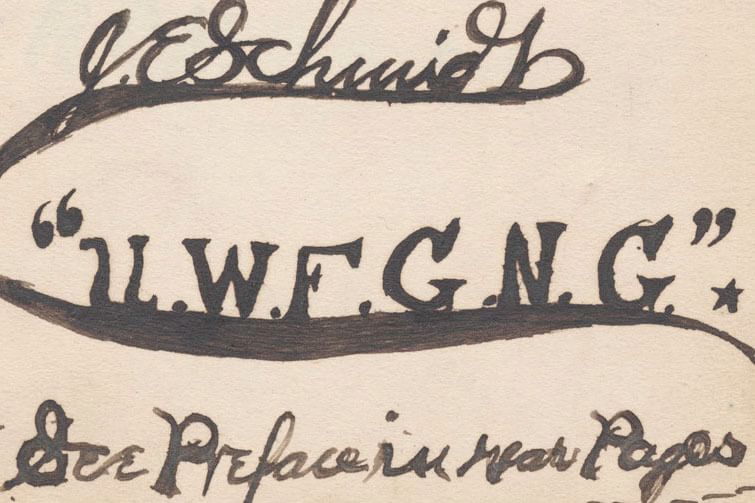 J. E. Schmidt
“U.W.F.G.N.G.”★
See Preface in rear Pages